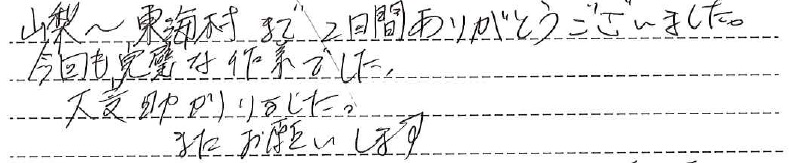 山梨〜東海村まで2日間ありがとうございました。
今回も完璧な作業でした。
大変助かりました。
またお願いします